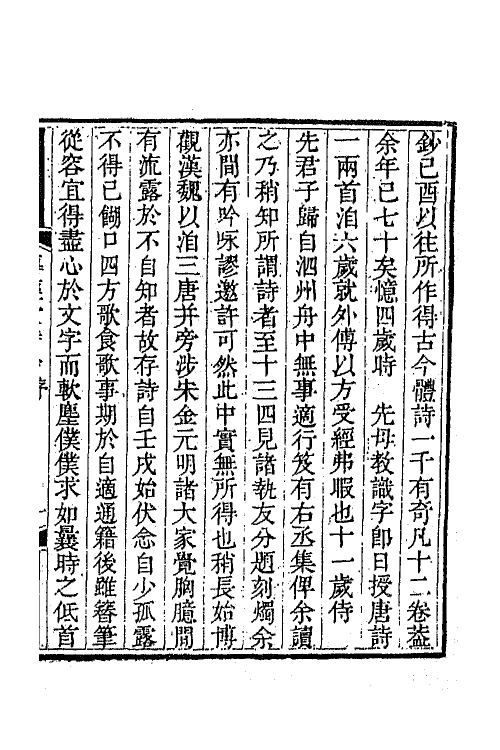 鈔己酉以往所作得古今體詩一千有奇凡十二卷葢
余年已七十矣憶四歲時　先母教識字卽日授唐詩
一兩首洎六歲就外傅以方受經弗暇也十一歲侍
先君子歸自泗州舟中無事適行笈有右丞集俾余讀
之乃稍知所謂詩者至十三四見諸執友分題刻燭余
亦間有吟咏謬邀許可然此中實無所得也稍長始博
觀漢魏以洎三唐并旁涉宋金元明諸大家覺胸臆間
有流露於不自知者故存詩自壬戌始伏念自少孤露
不得已餬口四方歌食歌事期於自適通籍後雖簪筆
從容宜得盡心於文字而軟塵僕僕求如曩時之低首